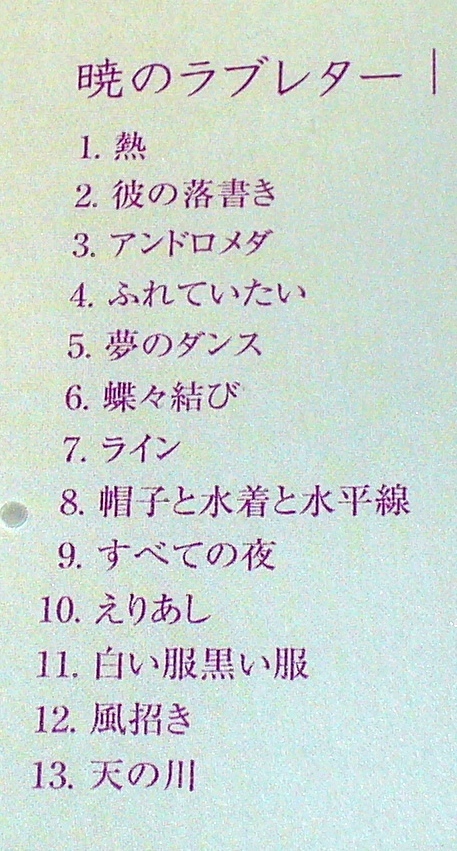 暁のラブレター
1. 熱
2. 彼の落書き
3. アンドロメダ
4. ふれていたい
5. 夢のダンス
6. 蝶々結び
7. ライン
8. 帽子と水着と水平線
9. すべての夜
10. えりあし
11. 白い服黒い服
12. 風招き
13. 天の川